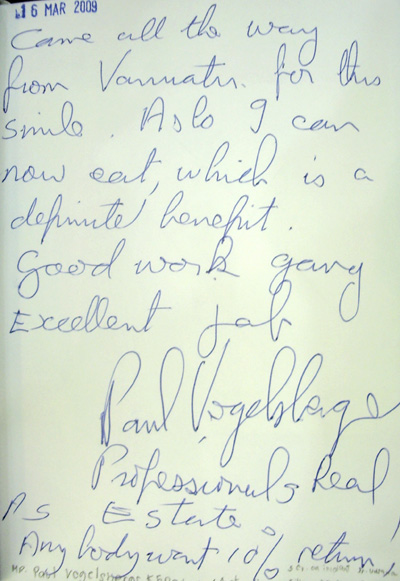 16 MAR 2009
Came all the way
from Vanuatu. for this
smile. Aslo I can
now eat, which is a
definite benefit.
Good work gang
Excellent job
Paul Vogelsberge
Professionals Real
PS Estate
Any body want 10% return!
MR. Paul